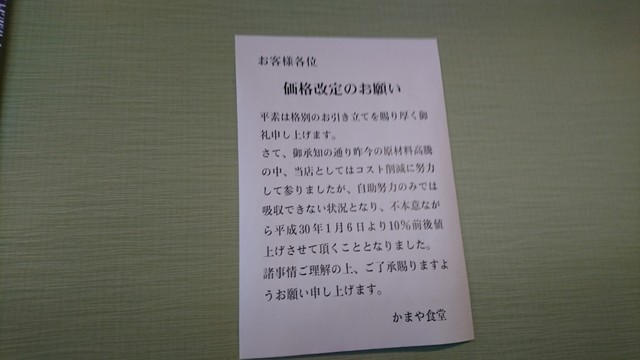 お客様各位
価格改定のお願い
平素は格別のお引き立てを賜り厚く御
礼申し上げます。
さて、御承知の通り昨今の原材料高騰
の中、当店としてはコスト削減に努力
して参りましたが、自助努力のみでは
吸収できない状況となり、不本意なが
ら平成30年1月6日より10%前後値
上げさせて頂くこととなりました。
諸事情ご理解の上、ご了承賜りますよ
うお願い申し上げます。
かまや食堂